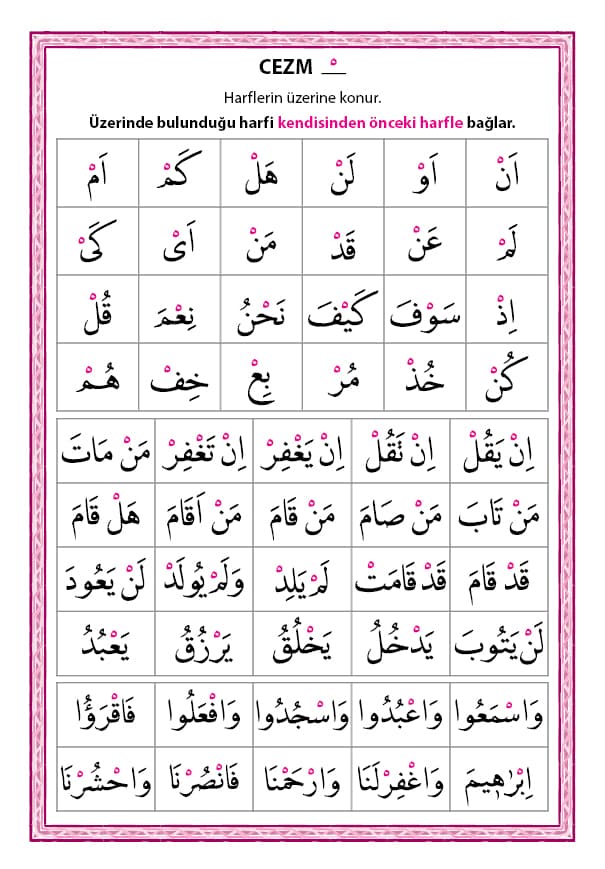 CEZM ـْـ
Harflerin üzerine konur.
Üzerinde bulunduğu harfi kendisinden önceki harfle bağlar.
اَنْ اَوْ لَنْ هَلْ كَمْ اَمْ
لَمْ عَنْ قَدْ مَنْ اَىْ كَىْ
اِذْ سَوْفَ كَيْفَ نَحْنُ نِعْمَ قُلْ
كُنْ خُذْ مُرْ بِعْ خِفْ هُمْ
اِنْ يَقُلْ اِنْ نَقُلْ اِنْ يَغْفِرْ اِنْ تَغْفِرْ مَنْ مَاتَ
مَنْ تَابَ مَنْ صَامَ مَنْ قَامَ مَنْ اَقَامَ هَلْ قَامَ
قَدْ قَامَ قَدْ قَامَتْ لَمْ يَلِدْ وَلَمْ يُولَدْ لَنْ يَعُودَ
لَنْ يَتُوبَ يَدْخُلُ يَخْلُقُ يَرْزُقُ يَعْبُدُ
وَاسْمَعُوا وَاعْبُدُوا وَاسْجُدُوا وَافْعَلُوا فَاقْرَؤُا
اِبْرٰه۪يمَ وَاغْفِرْلَنَا وَارْحَمْنَا فَانْصُرْنَا وَاحْشُرْنَا